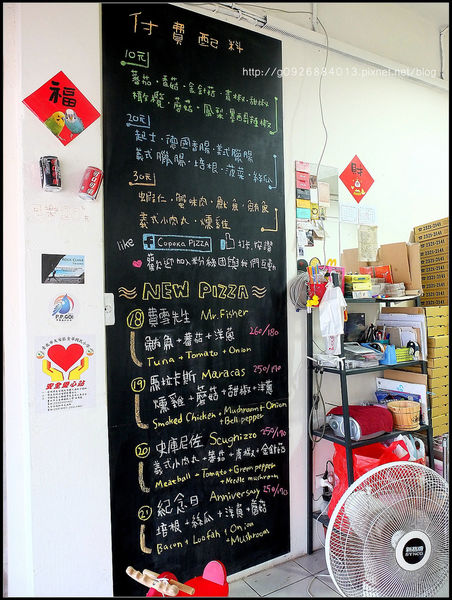 付費配料
http://g0926884013.pixnet.net/blog
10元
蕃茄·香菇·金針菇·青椒·甜椒
橄欖·蘑菇·鳳梨·墨西哥辣椒
20元
起士·德國香腸·義式臘腸
培根·菠菜·絲瓜
30元
蝦仁·蟹味肉·魷魚·鮪魚
義式小肉丸·燻雞
like f Copoka PIZZA 打卡.按讚
歡迎加入粉絲團與我們互動
NEW PIZZA
18 費雪先生 Mr.Fisher
鮪魚+蕃茄+洋蔥 260/180
Tuna + Tomato + Onion
19 馬拉卡斯 Maracas 250/170
燻雞+蘑菇+甜椒+洋蔥
Smoked Chicken + Mushroom + Onion
+ Bell pepper
20 史庫尼佐 Scugnizzo 250/170
義式小肉丸+蕃茄+青椒+金針菇
Meatball + Tomato + Green pepper
+ Needle mushroom
21 紀念日 Anniversay 250/170
培根+絲瓜+洋蔥+蘑菇
Bacon + Loofah + Onion
+ Mushroom
福
財
安全愛心站